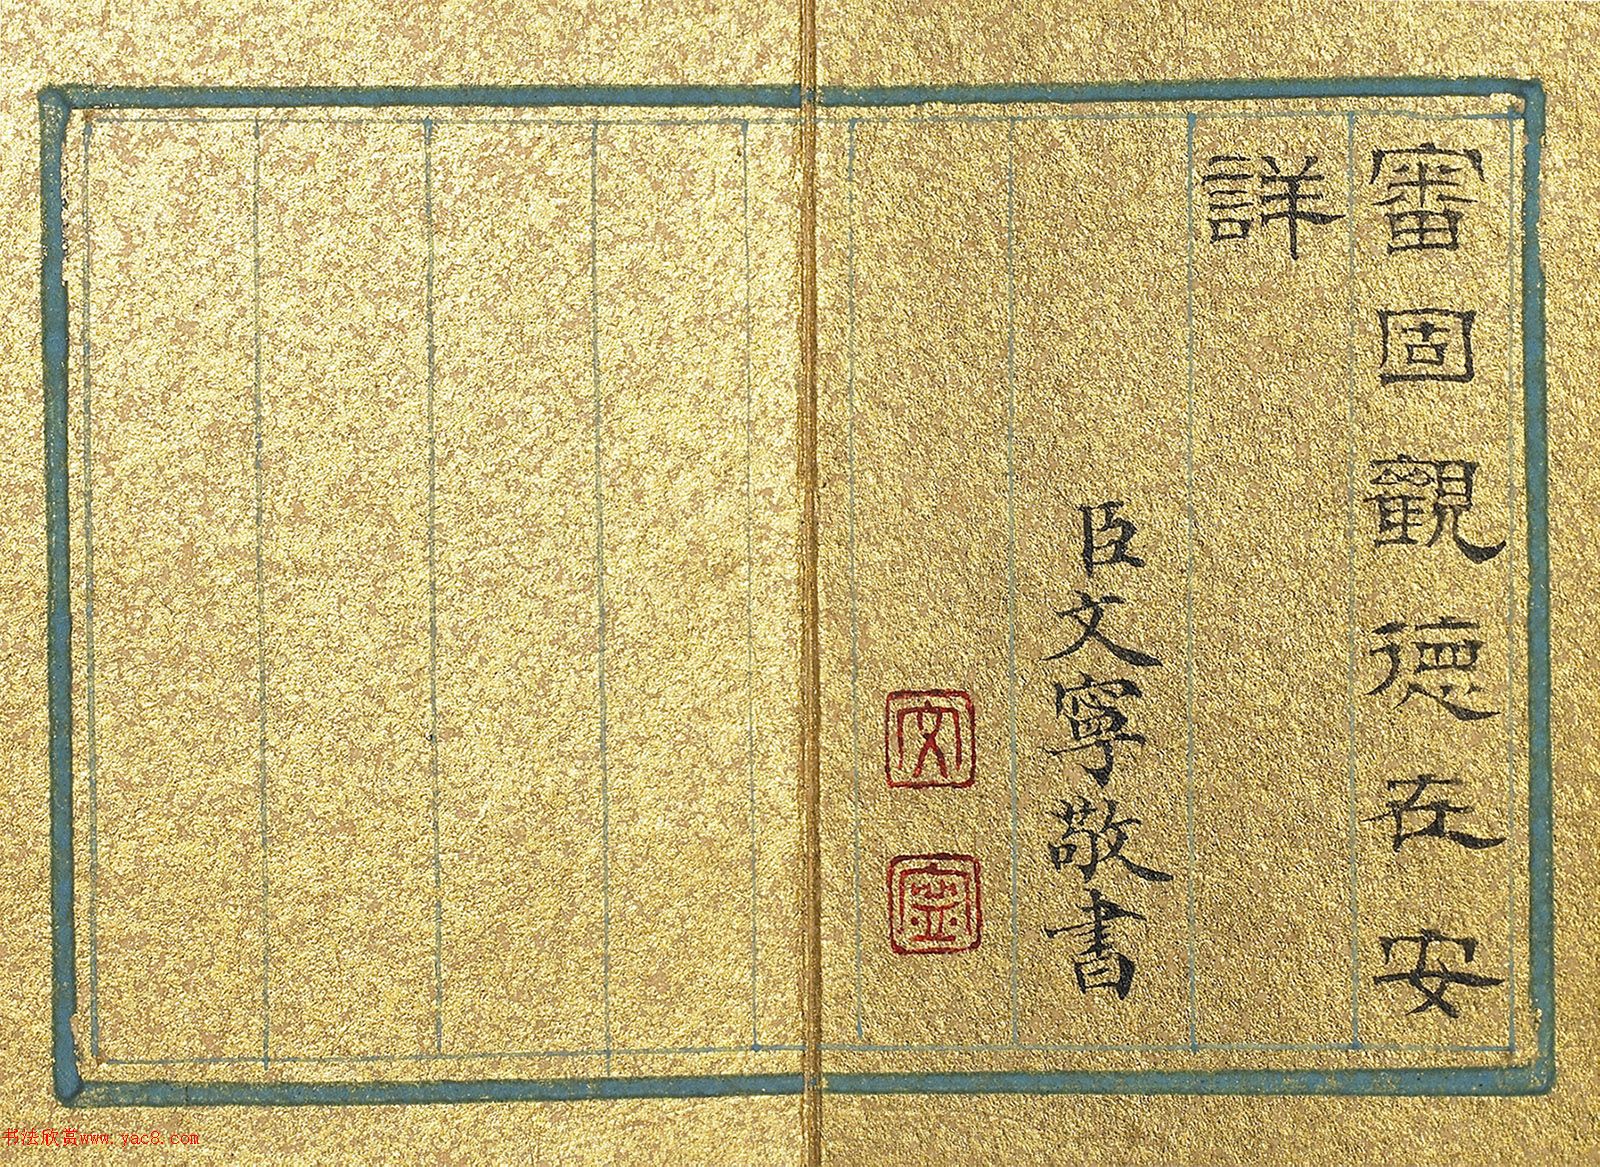 審固觀德在安
詳
臣文寧敬書
文
寍
书法欣赏www.yac8.com